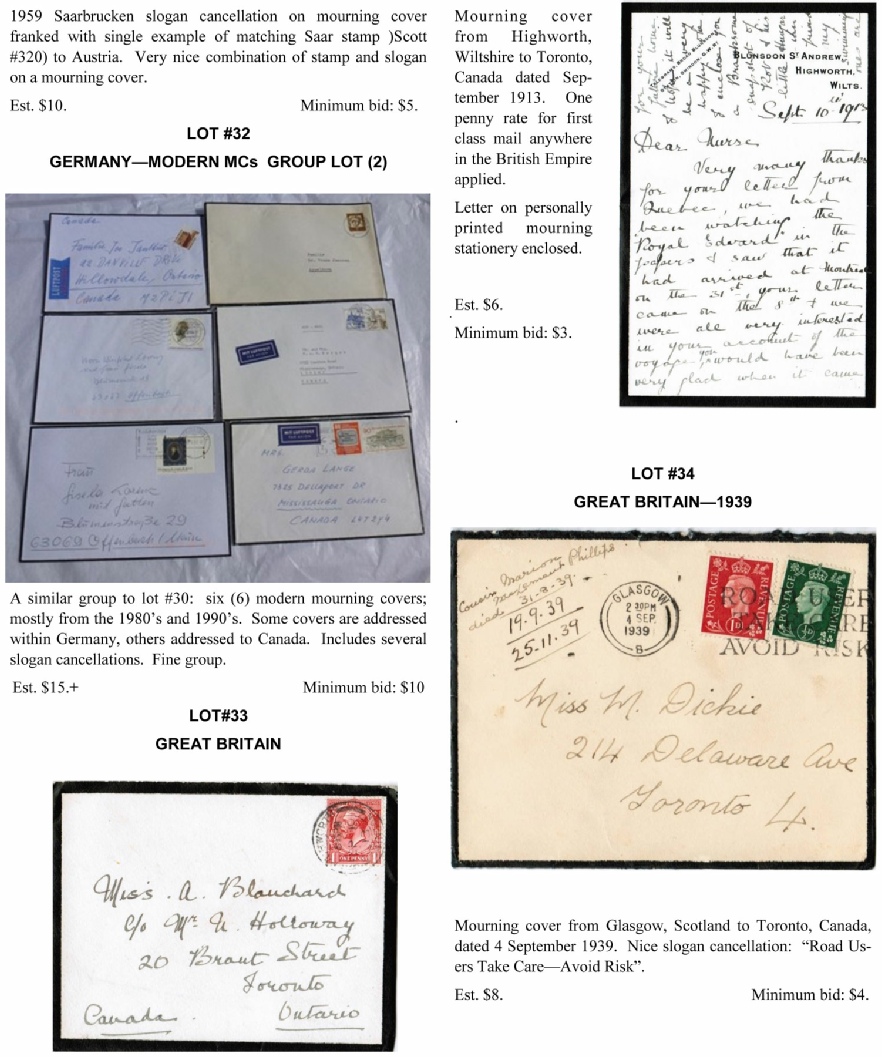 1959 Saarbrucken slogan cancellation on mourning cover
franked with single example of matching Saar stamp )Scott
#320) to Austria. Very nice combination of stamp and slogan
on a mourning cover.
Est. $10. Minimum bid: $5.
LOT #32
GERMANY—MODERN MCs GROUP LOT (2)
Canada
LUFTPOST
Canada M2R 1J1
MIT LUFTPOST
Frau
Blumenstraße 29
63069 Offenbach/Main
MIT LUFTPOST
MRS.
GERDA LANGE
MISSISSAUGA ONTARIO
CANADA
A similar group to lot #30: six (6) modern mourning covers;
mostly from the 1980's and 1990's. Some covers are addressed
within Germany, others addressed to Canada. Includes several
slogan cancellations. Fine group.
Est. $15.+ Minimum bid: $10
LOT#33
GREAT BRITAIN
ONE PENNY
Miss. A. Blanchard
c/o Mr. U. Holloway
20 Brant Street
Toronto
Canada Ontario
Mourning cover
from Highworth,
Wiltshire to Toronto,
Canada dated Sep-
tember 1913. One
penny rate for first
class mail anywhere
in the British Empire
applied.
Letter on personally
printed mourning
stationery enclosed.
Est. $6.
Minimum bid: $3.
BLUNSDON ST ANDREW,
HIGHWORTH,
WILTS.
Sept. 10th 1913
Dear Nurse
Very many thanks
for your letter from
Quebec, we had
been watching the
"Royal Edward" in the
papers & saw that it
had arrived at Montreal
on the 31st, your letter
came on the 8th & we
were all very interested
in your account of the
voyage, you would have been
very glad when it came
LOT #34
GREAT BRITAIN—1939
Cousin Marion
Phillips
died 31-8-39
19.9.39
25.11.39
GLASGOW
2 30PM
4 SEP
1939
8
POSTAGE REVENUE
1D
POSTAGE REVENUE
½D
ROAD USERS
TAKE CARE
AVOID RISK
Miss M. Dickie
214 Delaware Ave
Toronto 4.
Mourning cover from Glasgow, Scotland to Toronto, Canada,
dated 4 September 1939. Nice slogan cancellation: “Road Us-
ers Take Care—Avoid Risk”.
Est. $8. Minimum bid: $4.